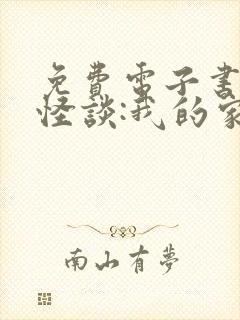 免費電子書
怪談:我的家
南山有夢